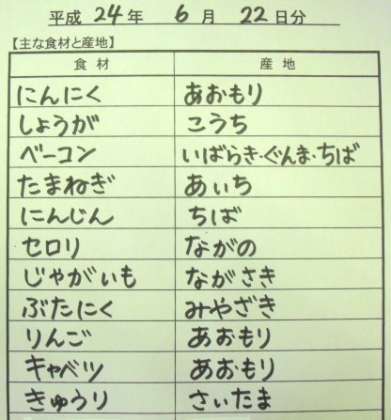 平成 24年 6月 22日分
【主な食材と産地】
食材 産地
にんにく あおもり
しょうが こうち
ベーコン いばらき・ぐんま・ちば
たまねぎ あいち
にんじん ちば
セロリ ながの
じゃがいも ながさき
ぶたにく みやざき
りんご あおもり
キャベツ あおもり
きゅうり さいたま